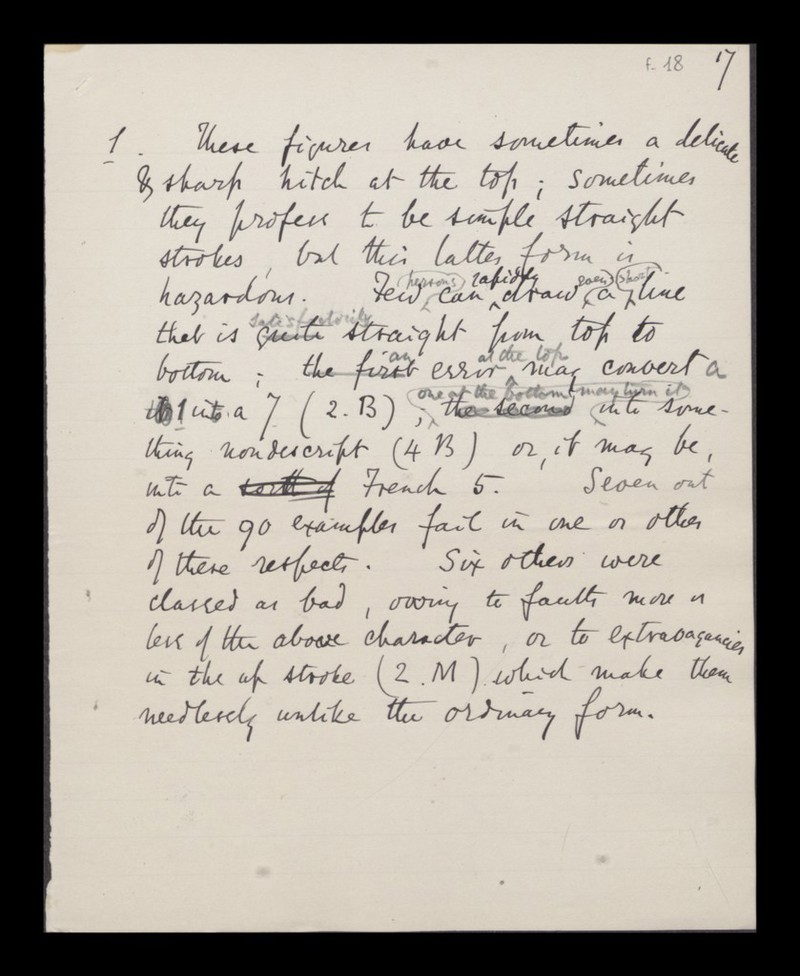 f. 18 17
1. These figures have sometimes a delicate
& sharp hitch at the top; sometimes
they profess to be simple straight
strokes, but this latter form is
persons rapidly even short
hazardous. Few can draw a line
satisfactorily
that is quite straight from top to
an at the top
bottom; the first error may convert a
one at the bottom may turn it
1 into a 7 (2.B), the second into some-
thing nondescript (4 B) or, it may be,
into a sort of French 5. Seven out
of the 90 examples fail in one or other
of these respects. Six others were
classed as bad, owing to faults more or
less of the above character, or to extravagancies
in the up stroke (2.M) which make them
needlessly unlike the ordinary form.